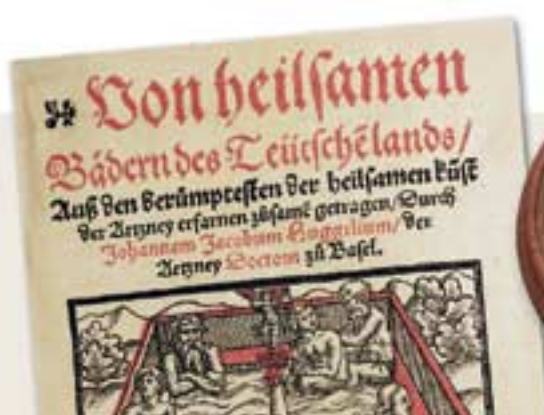 Von heilsamen
Bädern des Teütschē lands/
Auß den berümptesten der heilsamen kūst
der Artzney erfarnen zůsamē getragen/Durch
Johannem Jacobum Huggelium/ der
Artzney Doctorn zů Basel.